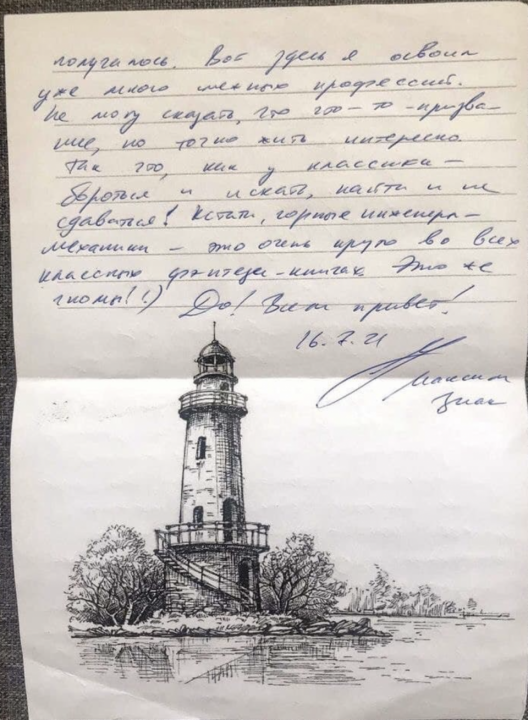 получалось. Вот здесь я освоил
уже много мелких профессий.
Не могу сказать, что что-то - призва-
ние, но точно жить интересно.
Так что, как у классика -
бороться и искать, найти и не
сдаваться! Кстати, горные инженеры-
механики - это очень круто во всех
классных фэнтези-книгах. Это же
гномы! :)
До! Вам привет!
16.7.21
Максим
Знак